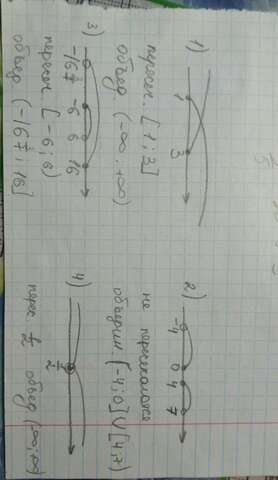 1)
1 3
пересеч. [1; 3]
объед. (-∞; +∞)
2)
-4 0 4 7
не пересекаются
объедин. (-4; 0] ∪ [4; 7)
3)
-16 -6 6 16
пересеч [-6; 6)
объед (-16 ; 16]
4)
1/2
перес 1/2 объед (-∞; ∞)